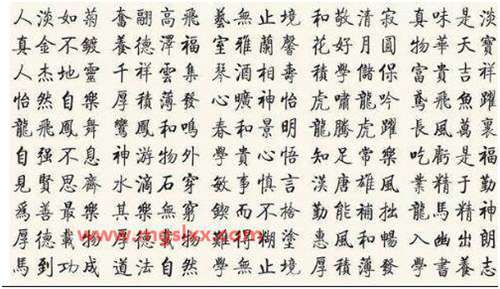 人淡如菊 奮翮高飛 藝無止境 和敬清寂 真味是淡
真金不鍍 養德澤福 室雅蘭馨 花好月圓 物華天寶
人杰地靈 千祥雲集 琴酒相壽 積學儲保 富貴吉祥
怡然自樂 厚積薄發 心曠神怡 虎嘯龍吟 鳶飛魚躍
龍飛鳳舞 鸞鳳和鳴 春和景明 龍騰虎躍 長風萬裏
自强不息 神游物外 學貴心悟 知足常樂 吃虧是福
見賢思齊 水滴石穿 敏事慎言 漢唐雄風 業精于勤
爲善最樂 其樂無窮 鍥而不捨 勤能補拙 龍馬精神
厚德載物 厚德載物 難得糊塗 惠風和暢 入幽出朗
馬到功成 道法自然 學無止境 厚積薄發 學書朗志